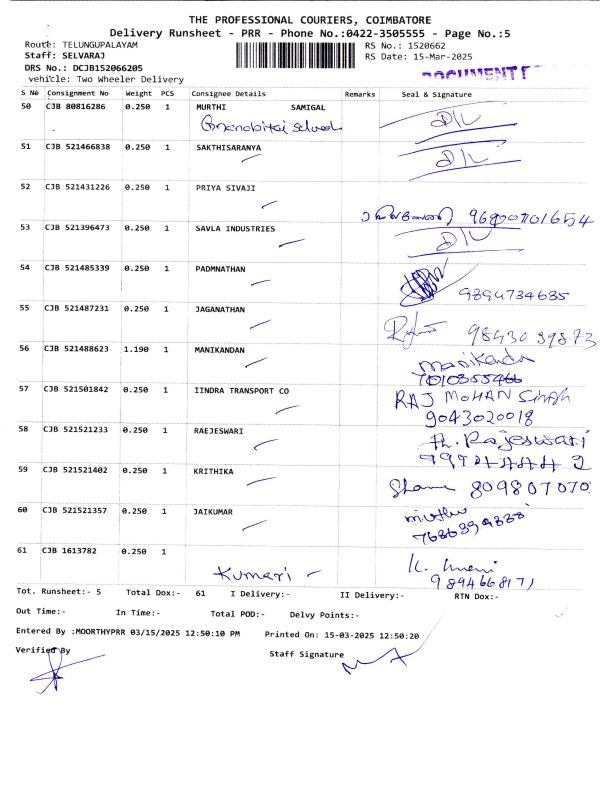 THE PROFESSIONAL COURIERS, COIMBATORE
Delivery Runsheet - PRR - Phone No.:0422-3505555 - Page No.:5
Route: TELUNGUPALAYAM RS No.: 1520662
Staff: SELVARAJ RS Date: 15-Mar-2025
DRS No.: DCJB152066205
vehicle: Two Wheeler Delivery
S No Consignment No Weight PCS Consignee Details Remarks Seal & Signature
50 CJB 80816286 0.250 1 MURTHI SAMIGAL
D/L
51 CJB 521466838 0.250 1 SAKTHISARANYA
D/L
52 CJB 521431226 0.250 1 PRIYA SIVAJI
53 CJB 521396473 0.250 1 SAVLA INDUSTRIES
D/L
54 CJB 521485339 0.250 1 PADMNATHAN
9894734685
55 CJB 521487231 0.250 1 JAGANATHAN
98430 39873
56 CJB 521488623 1.190 1 MANIKANDAN
Manikanda
57 CJB 521501842 0.250 1 IINDRA TRANSPORT CO
RAJ MOHAN Singh
9043020018
58 CJB 521521233 0.250 1 RAEJESWARI
Rajeswari
59 CJB 521521402 0.250 1 KRITHIKA
809807070
60 CJB 521521357 0.250 1 JAIKUMAR
61 CJB 1613782 0.250 1
Kumari
9894668171
Tot. Runsheet:- 5 Total Dox:- 61 I Delivery:- II Delivery:- RTN Dox:-
Out Time:- In Time:- Total POD:- Delvy Points:-
Entered By :MOORTHYPRR 03/15/2025 12:50:10 PM Printed On: 15-03-2025 12:50:20
Verified By Staff Signature